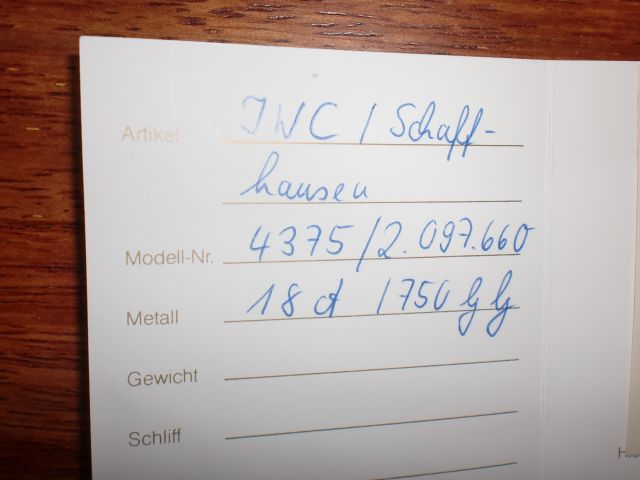 Artikel IWC / Schaff-
hausen
Modell-Nr. 4375/2.097.660
Metall 18 ct /750 GG
Gewicht
Schliff